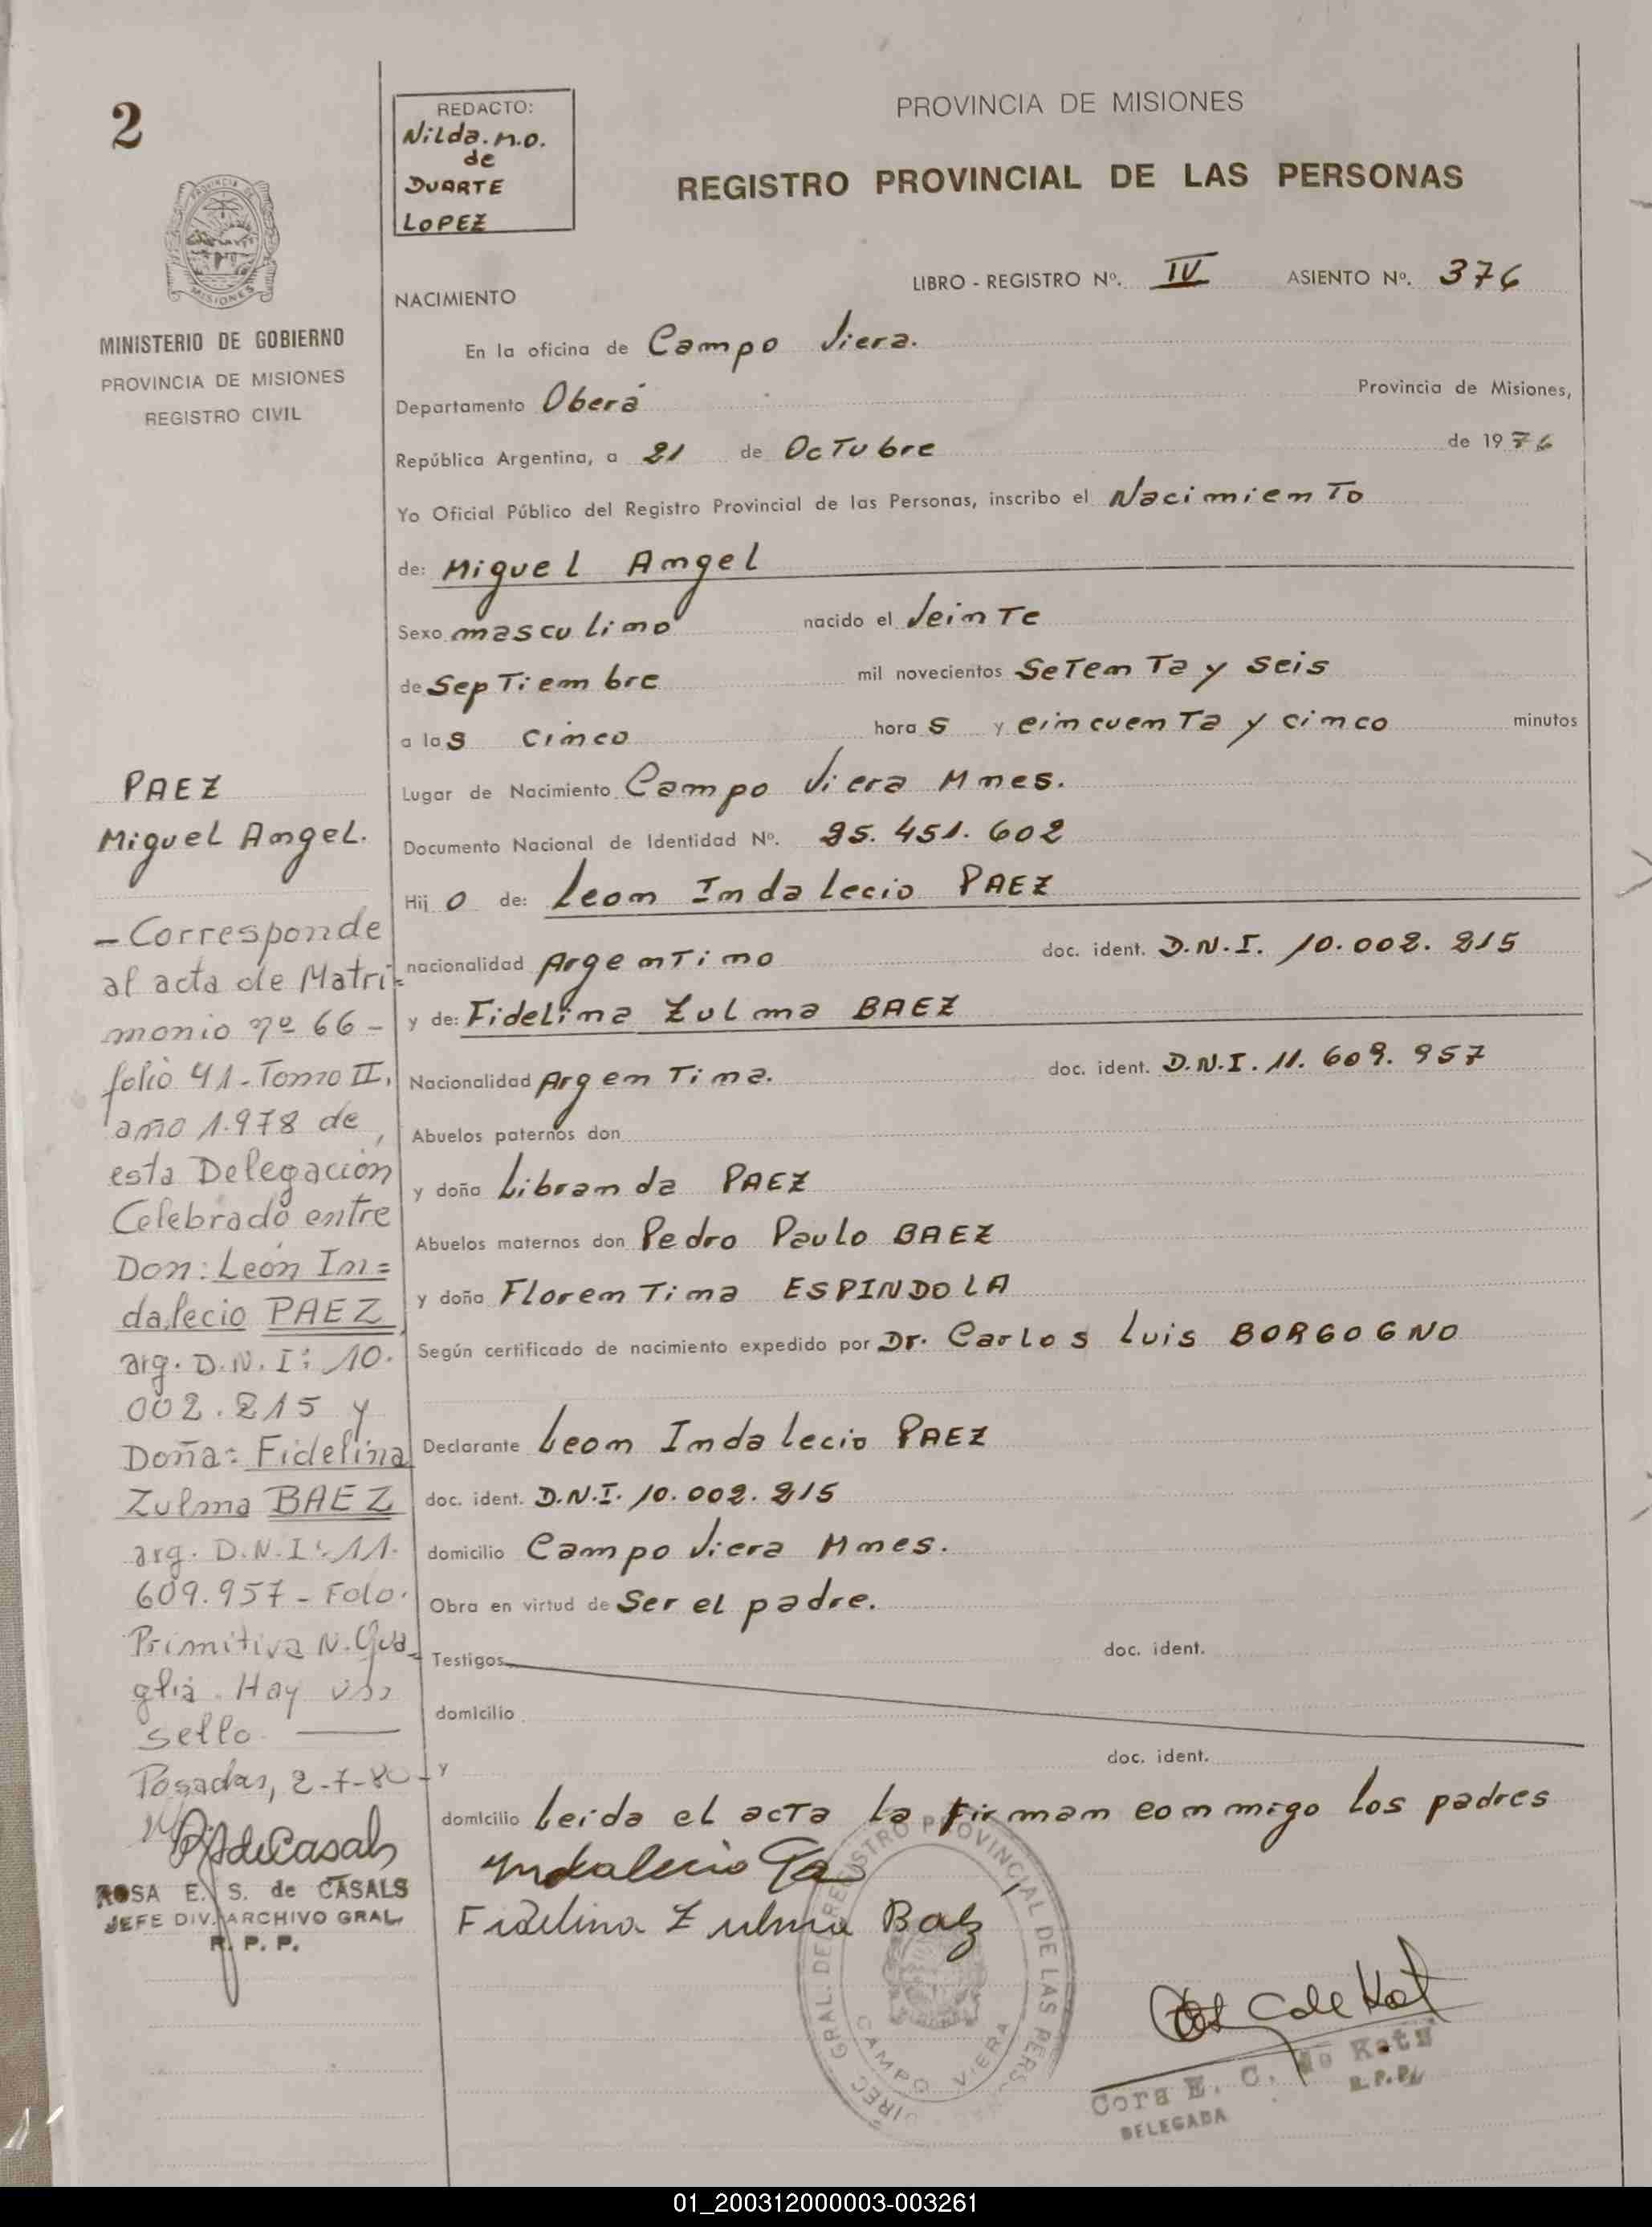 2
REDACTO:
Nilda. M.O.
de
DUARTE
LOPEZ
PROVINCIA DE MISIONES
REGISTRO PROVINCIAL DE LAS PERSONAS
MISIONES
MINISTERIO DE GOBIERNO
PROVINCIA DE MISIONES
REGISTRO CIVIL
LIBRO - REGISTRO Nº. IV ASIENTO Nº. 376
NACIMIENTO
En la oficina de Campo Viera.
Departamento Oberá Provincia de Misiones,
República Argentina, a 21 de Octubre de 1976
Yo Oficial Público del Registro Provincial de las Personas, inscribo el Nacimiento
de: Miguel Angel
Sexo masculino nacido el Veinte
de Septiembre mil novecientos Setenta y Seis
a las cinco horas y cincuenta y cinco minutos
Lugar de Nacimiento Campo Viera Mnes.
Documento Nacional de Identidad Nº. 25.451.602
Hijo de: Leon Indalecio PAEZ
nacionalidad Argentino doc. ident. D.N.I. 10.002.215
y de: Fidelina Zulma BAEZ
Nacionalidad Argentina. doc. ident. D.N.I. 11.609.957
Abuelos paternos don
y doña Libranda PAEZ
Abuelos maternos don Pedro Paulo BAEZ
y doña Florentina ESPINDOLA
Según certificado de nacimiento expedido por Dr. Carlos Luis BORGOGNO
Declarante Leon Indalecio PAEZ
doc. ident. D.N.I. 10.002.215
domicilio Campo Viera Mnes.
Obra en virtud de Ser el padre.
Testigos doc. ident.
domicilio
y doc. ident.
domicilio Leida el acta la firman conmigo los padres
Indalecio Pa
Fidelina Zulma Baez
PAEZ
Miguel Angel.
- Corresponde
al acta de Matri=
monio nº 66-
folio 41-Tomo II,
año 1.978 de
esta Delegación
Celebrado entre
Don: León In=
dalecio PAEZ,
arg. D.N.I: 10.
002.215 y
Doña: Fidelina
Zulma BAEZ
arg. D.N.I: 11.
609.957 - Fdo.
Primitiva N. Qua-
glia. Hay un
sello.
Posadas, 2-7-80-
ROSA E. S. de CASALS
JEFE DIV. ARCHIVO GRAL.
R. P. P.
DIREC. GRAL. DEL REGISTRO PROVINCIAL DE LAS PERS
CAMPO VIERA
Cora E. C. de Katz
DELEGADA R.P.P.
01_200312000003-003261